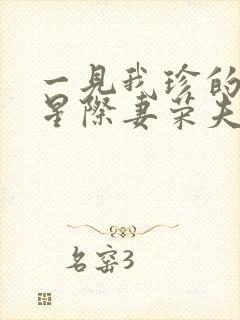 一見我珍的
星際妻荣夫
名窑3